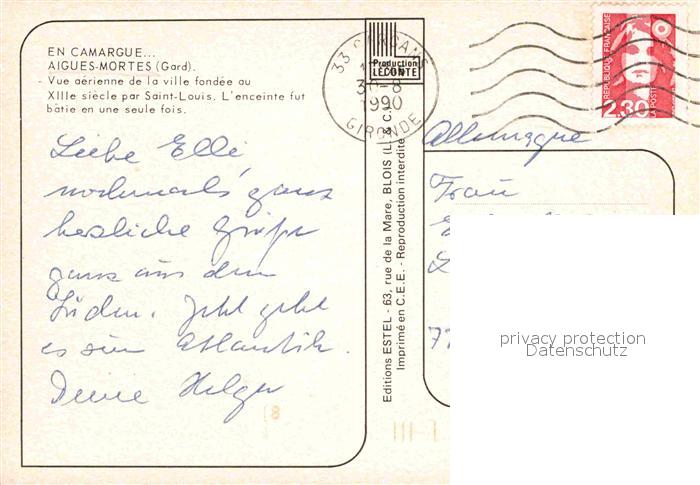 EN CAMARGUE...
AIGUES-MORTES (Gard).
- Vue aérienne de la ville fondée au
XIIIe siècle par Saint-Louis. L'enceinte fut
bâtie en une seule fois.
Liebe Elli
nochmals ganz
herzliche Grüße
ganz aus dem
Süden. Jetzt geht
es zum Atlantik.
Deine Helga
Production
LECONTE
33
30-8
1990
GIRONDE
Editions ESTEL - 63, rue de la Mare, BLOIS (L. & C.)
Imprimé en C.E.E. - Reproduction interdite
REPUBLIQUE FRANÇAISE
LA POSTE
2,30
Allemagne
Frau
privacy protection
Datenschutz